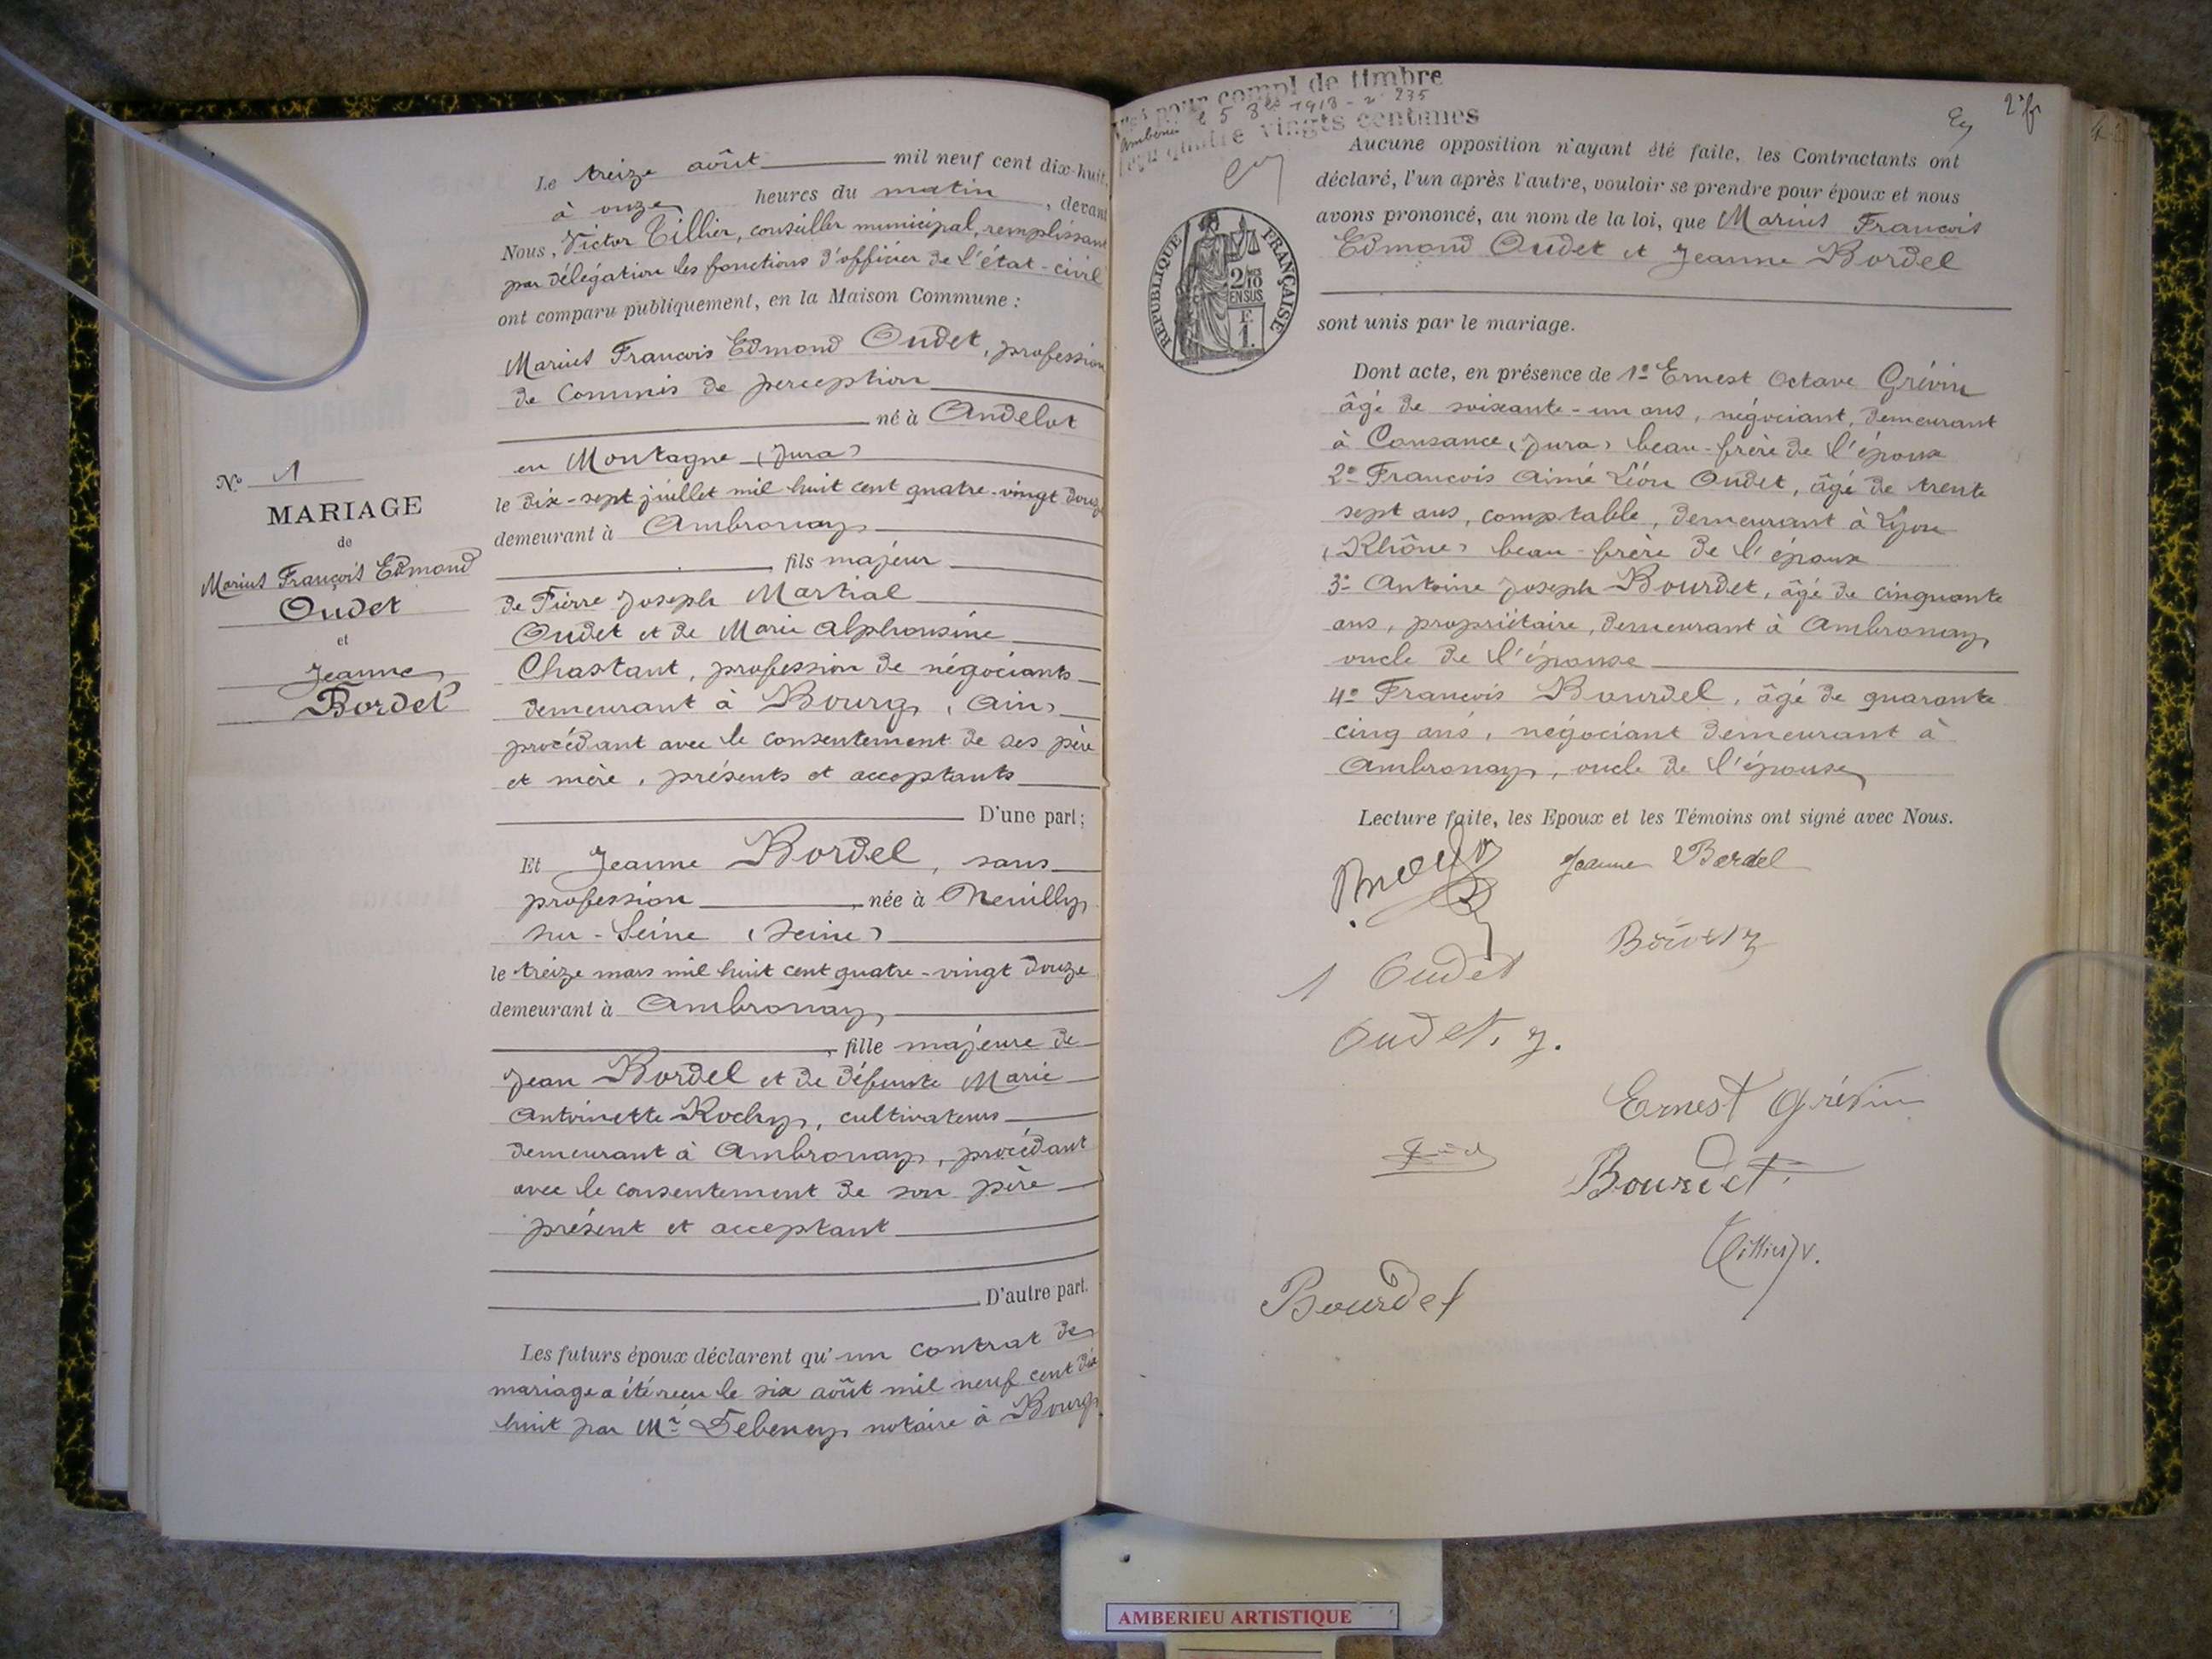 Nº 1
MARIAGE
de
Marius François Edmond
Oudet
et
Jeanne
Bordel
Le treize août mil neuf cent dix-huit,
à onze heures du matin, devant
Nous, Victor Tillier, conseiller municipal, remplissant
par délégation les fonctions d'officier de l'état-civil
ont comparu publiquement, en la Maison Commune :
Marius François Edmond Oudet, profession
de Commis de perception
né à Andelot
en Montagne (Jura)
le dix-sept juillet mil huit cent quatre-vingt douze
demeurant à Ambronay
, fils majeur
de Pierre Joseph Martial
Oudet et de Marie Alphonsine
Chastant, profession de négociants
demeurant à Bourg (Ain)
procédant avec le consentement de ses père
et mère, présents et acceptants
D'une part;
Et Jeanne Bordel, sans
profession, née à Neuilly
sur-Seine (Seine)
le treize mars mil huit cent quatre-vingt douze
demeurant à Ambronay
, fille majeure de
Jean Bordel et de défunte Marie
Antoinette Rochy, cultivateurs
demeurant à Ambronay, procédant
avec le consentement de son père
présent et acceptant
D'autre part.
Les futurs époux déclarent qu'un contrat de
mariage a été reçu le six août mil neuf cent dix
huit par Mᵉ Debeney notaire à Bourg
pour compl de timbre
1918 - nº 235
quatre vingts centimes
2 f
RÉPUBLIQUE FRANÇAISE
2/10
EN SUS
F.
1.
Aucune opposition n'ayant été faite, les Contractants ont
déclaré, l'un après l'autre, vouloir se prendre pour époux et nous
avons prononcé, au nom de la loi, que Marius François
Edmond Oudet et Jeanne Bordel
sont unis par le mariage.
Dont acte, en présence de 1º Ernest Octave Grévin
âgé de soixante-un ans, négociant, demeurant
à Cousance (Jura) beau-frère de l'époux
2º François Aimé Léon Oudet, âgé de trente
sept ans, comptable, demeurant à Lyon
(Rhône) beau-frère de l'époux
3º Antoine Joseph Bourdet, âgé de cinquante
ans, propriétaire, demeurant à Ambronay
oncle de l'épouse
4º François Bourdel, âgé de quarante
cinq ans, négociant demeurant à
Ambronay, oncle de l'épouse
Lecture faite, les Epoux et les Témoins ont signé avec Nous.
Jeanne Bordel
Oudet
Oudet. J.
Ernest Grévin
Bourdet
Tillier V.
Bourdel
AMBERIEU ARTISTIQUE